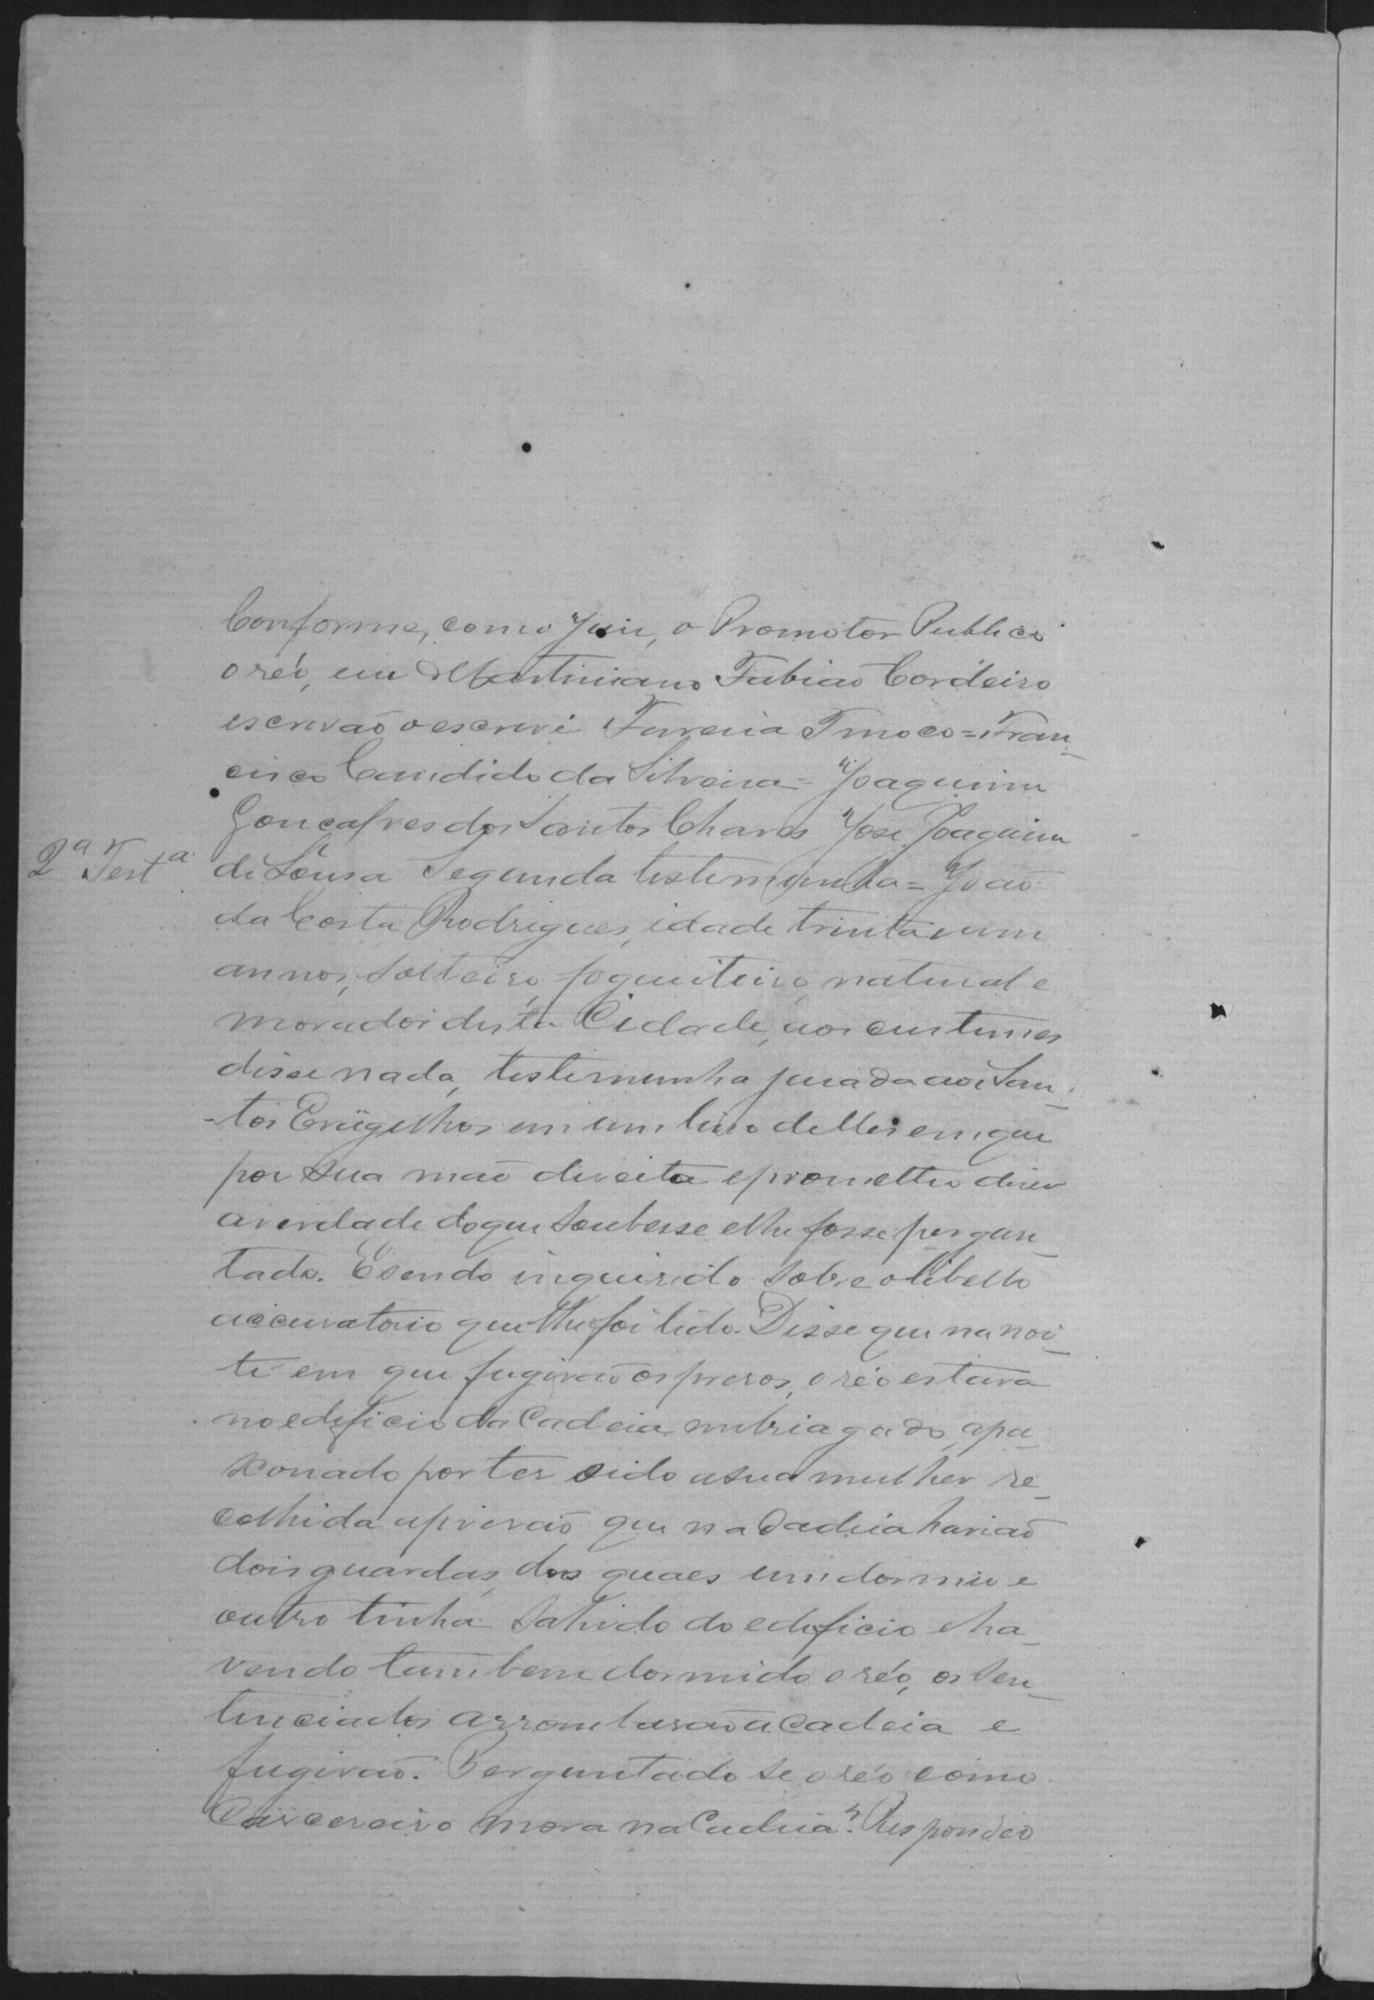 Conforme, como Juiz, o Promotor Publico
o réo, eu Martiniano Fabião Cordeiro
escrivão o escrevi Ferreira Tinoco = Fran_
cisco Candido da Silveira = Joaquim
Gonçalves dos Santos Chaves José Joaquim
2ª Testª de Sousa Segunda testemunha = João
da Costa Rodrigues, idade trinta e um
annos, solteiro, fogueteiro, natural e
morador desta Cidade, aos custumes
disse nada, testemunha jurada aos San_
-tos Evãgelhos em um livro delles em que
por sua mão direita e prometteo diser
a verdade do que soubesse e lhe fosse pergun_
tado. E sendo inquirido sobre o libello
accusatorio que lhe foi lido. Disse que na noi_
te em que fugirão os presos, o réo estava
no edificio da Cadeia embriagado, apa_
xonado por ter sido a sua mulher re_
colhida a prisão que na Cadeia havião
dois guardas, dos quaes um dormiu e
outro tinha sahido do edificio e ha_
vendo tambem dormido o réo, os sen_
tenciados arrombarão a cadeia e
fugirão. Perguntado se o réo como
Carcereiro mora na Cadeia? Respondeo